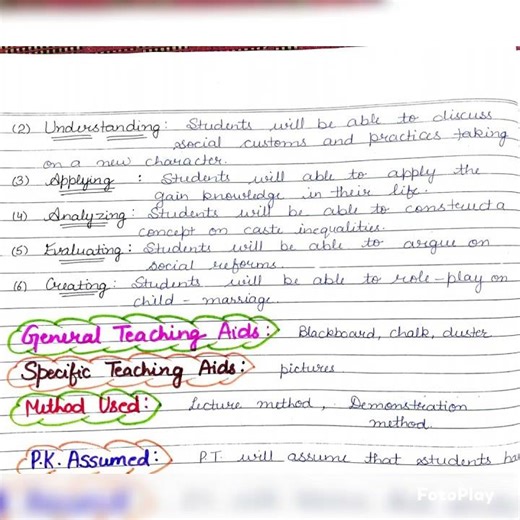 (2) Understanding: Students will be able to discuss
social customs and practices taking
on a new character.
(3) Applying : Students will able to apply the
gain knowledge in their life.
(4) Analyzing: Students will be able to construct a
concept on caste inequalities.
(5) Evaluating: Students will be able to argue on
social reforms.
(6) Creating: Students will be able to role-play on
child - marriage
General Teaching Aids: Blackboard, chalk, duster
Specific Teaching Aids: pictures
Method Used: Lecture method, Demonstration
method.
P.K. Assumed: P.T. will assume that students ha
FotoPlay